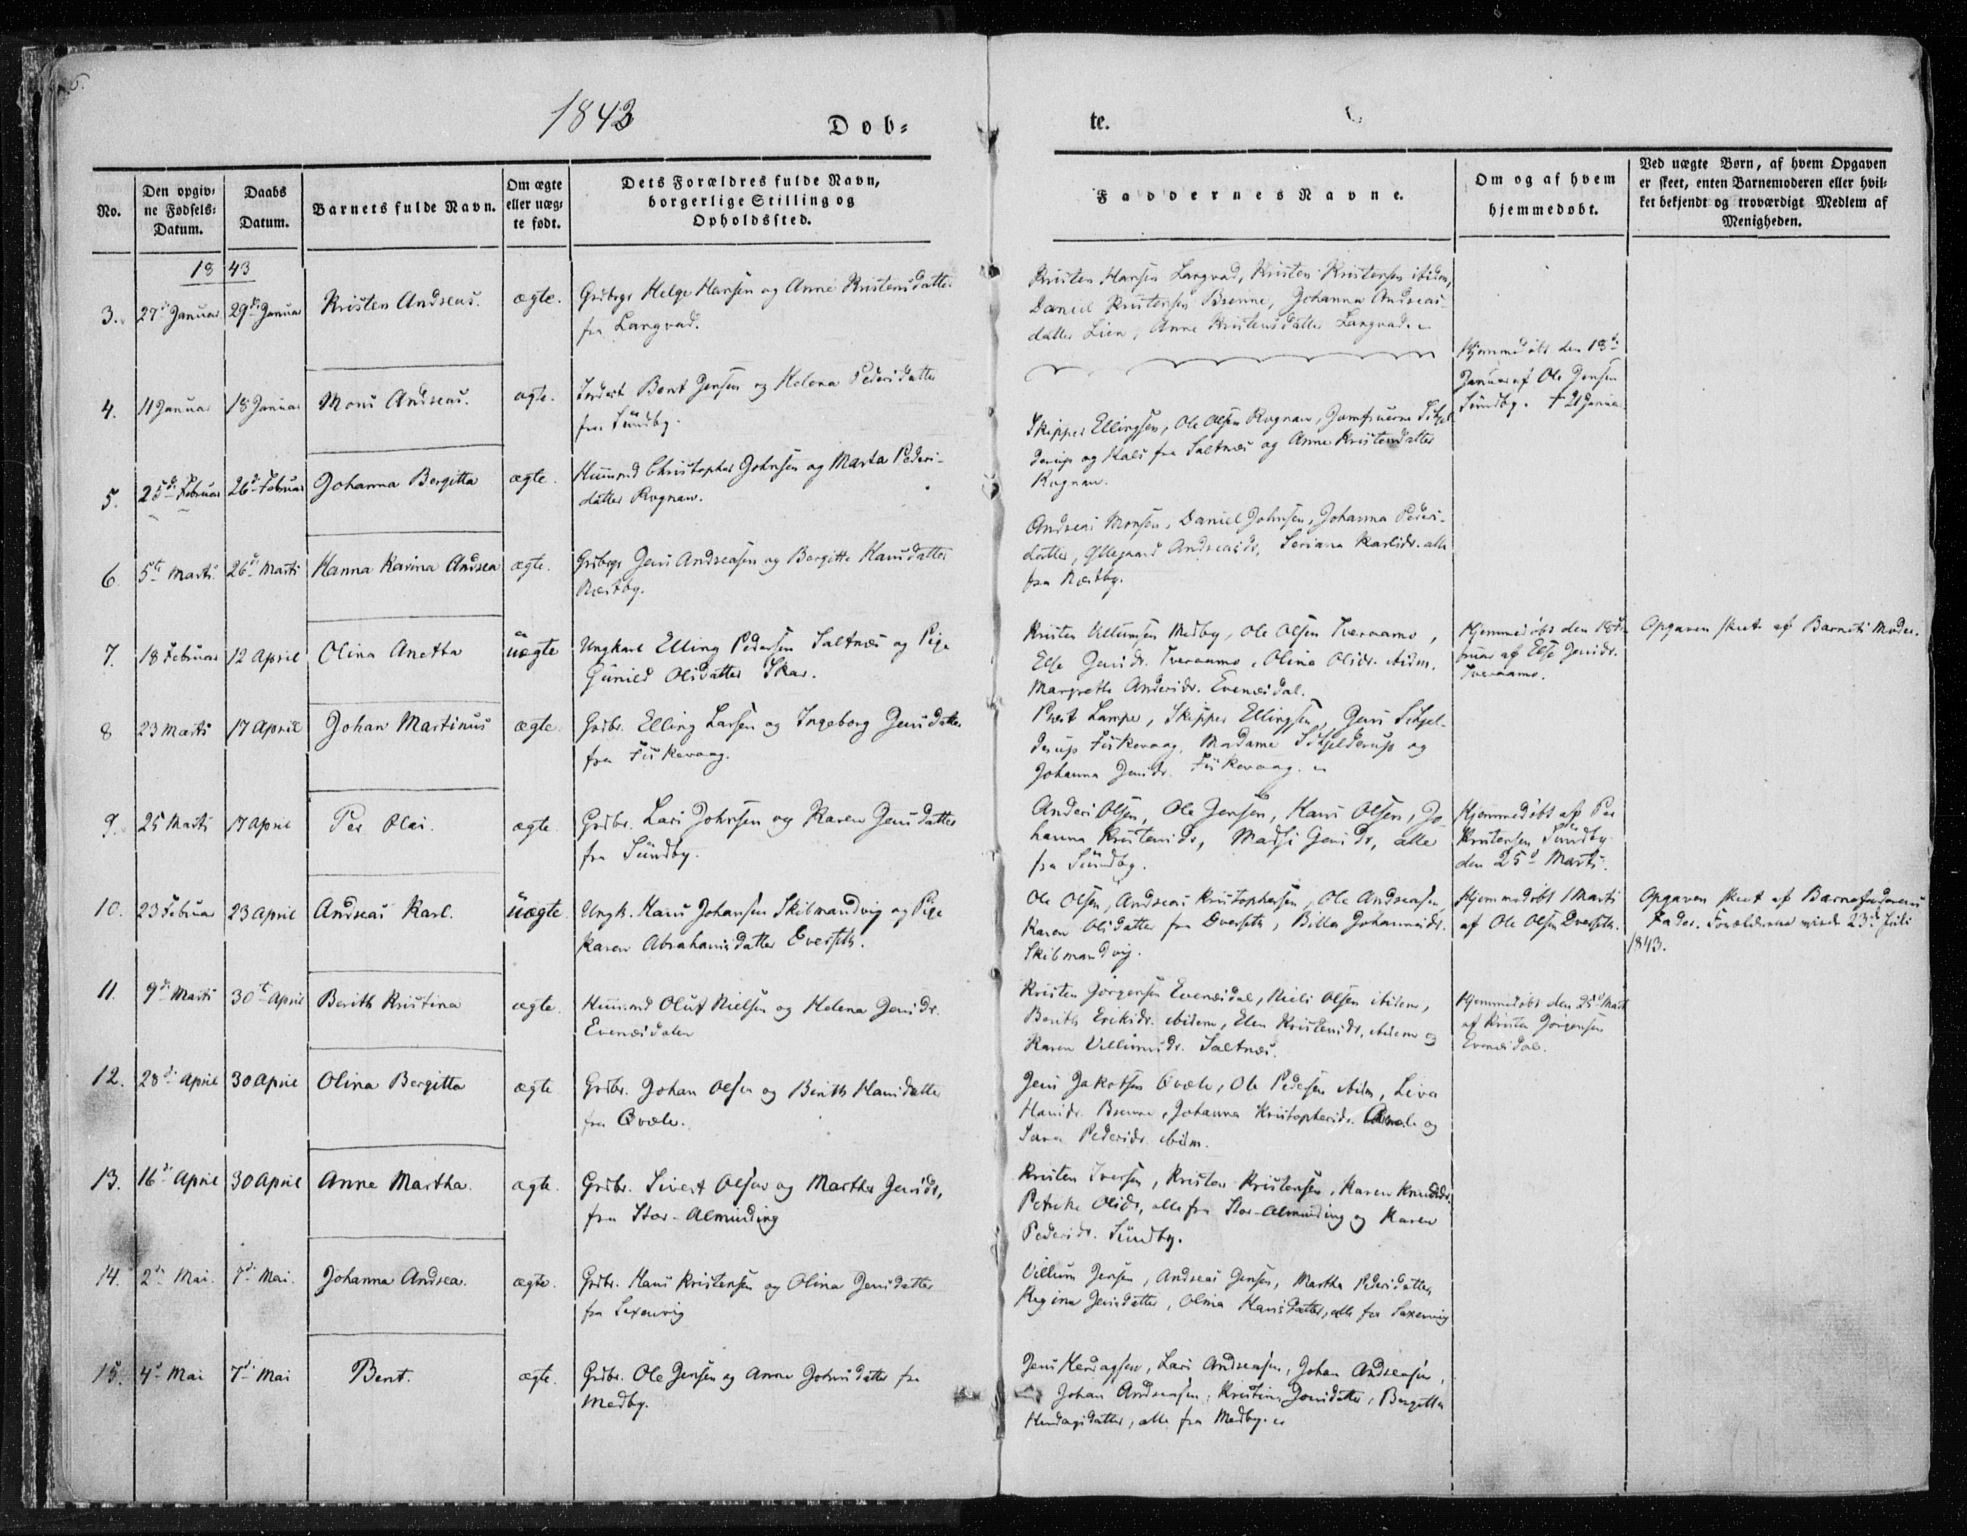 1843
Døb=
te.
No.
Den opgiv=
ne Fødsels=
Datum.
Daabs
Datum.
Barnets fulde Navn.
Om ægte
eller uæg=
te født.
Dets Forældres fulde Navn,
borgerlige Stilling og
Opholdssted.
Faddernes Navne.
Om og af hvem
hjemmedøbt.
Ved uægte Børn, af hvem Opgaven
er skeet, enten Barnemoderen eller hvil=
ket bekjendt og troværdigt Medlem af
Menigheden.
1843
3. 27d Januar 29d Januar Kristen Andreas. ægte. Grdbrgr Helge Hansen og Anne Kristensdatter
fra Langvad.
Kristen Hansen Langvad, Kristen Kristensen ibidem,
Daniel Kristensen Brenne, Johanna Andreas-
datter Lien, Anne Kristensdatter Langvad.
4. 11 Januar 18 Januar Mons Andreas. ægte. Inderst Bent Jensen og Helena Pedersdatter
fra Sundby.
Hjemmedøbt den 18de
Januar af Ole Jensen
Sundby. † 21 Januar
5. 25de Februar 26d Februar Johanna Bergitta ægte. Huusmd Christopher Johnsen og Marta Peders-
datter Rognan.
Skipper Ellingsen, Ole Olsen Rognan, Jomfruerne Schjel
derup og Hals fra Saltnæs og Anne Kristensdatter
Rognan.
6. 5te Marts 26d Marts Hanna Karina Andrea ægte. Grdbrgr Jens Andreasen og Bergitte Hansdatter
Næstby.
Andreas Monsen, Daniel Johnsen, Johanna Peders-
datter, Øllegaard Andreasdr, Seriana Karlsdr. alle
fra Næstby.
7. 18 Februar 12 April Olina Anetta uægte Ungkarl Elling Pedersen Saltnæs og Pige
Gunild Olsdatter Skar.
Kristen Villumsen Medby, Ole Olsen Tveraamo,
Else Jensdr. Tveraamo, Olina Olsdr. ibidm.
Margrethe Andersdr. Evenesdal.
Hjemmedøbt den 18 Fe
bruar af Else Jensdr.
Tveraamo.
Opgaven skeet af Barnets Moder.
8 23 Marts 17 April Johan Martinus ægte. Grdbr. Elling Larsen og Ingeborg Jensdatter
fra Fiskevaag.
Præst Lampe, Skipper Ellingsen, Jens Schjel-
derup Fiskevaag, Madame Schjelderup og
Johanna Jensdr. Fiskevaag.
9. 25 Marts 17 April Per Olai. ægte. Grdbr. Lars Johnsen og Karen Jensdatter
fra Sundby.
Anders Olsen, Ole Jensen, Hans Olsen, Jo-
hanna Kristensdr, Marsi Jensdr, alle
fra Sundby.
Hjemmedøbt af Per
Kristensen Sundby
den 25d Marts.
10. 23 Februar 23 April Andreas Karl. uægte. Ungk. Hans Johansen Skibmandvig og Pige
Karen Abrahamsdatter Everseth.
Ole Olsen, Andreas Kristophersen, Ole Andreasen
Karen Olsdatter fra Everseth, Billa Johannesdr.
Skibmandvig.
Hjemmedøbt 1 Marts
af Ole Olsen Everseth.
Opgaven skeet af Barnefaderens
Fader. Forældrene viede 23d Juli
1843.
11. 9d Marts 30te April Berith Kristina ægte. Huusmd Oluf Nielsen og Helena Jensdr.
Evenesdalen
Kristen Jørgensen Evenesdal, Niels Olsen ibidem,
Berith Eriksdr. ibidem, Elen Kristensdr. ibidem og
Karen Villumsdr. Saltnæs.
Hjemmedøbt den 25d Marts
af Kristen Jørgensen
Evenesdal.
12. 28d April 30 April Olina Bergitta ægte Grdbr. Johan Olsen og Berith Hansdatter
fra Qvæle.
Jens Jakobsen Qvæle, Ole Pedersen ibidm, Liva
Hansdr. Brenne, Johanna Kristophersdr. Qvæle og
Sara Pedersdr. ibidm.
13. 16d April 30 April Anne Martha. ægte. Grdbr. Sivert Olsen og Martha Jensdr,
fra Stor-Alminding
Kristen Iversen, Kristen Kristensen, Karen Knudsdr
Petrikke Olsdr, alle fra Stor-Alminding og Karen
Pedersdr. Sundby.
14. 2d Mai. 7d Mai. Johanna Andrea. ægte. Grdbr. Hans Kristensen og Olina Jensdatter
fra Saxenvig
Villum Jensen, Andreas Jensen, Martha Pedersdatter,
Regina Jensdatter, Olina Hansdatter, alle fra Saxenvig
15. 4d Mai 7d Mai Bent. ægte. Grdbr. Ole Jensen og Anne Johnsdatter fra
Medby.
Jens Herdagsen, Lars Andreasen, Johan Andreasen,
Johan Andreasen, Kristina Jonsdatter, Bergitta
Herdagsdatter, alle fra Medby.